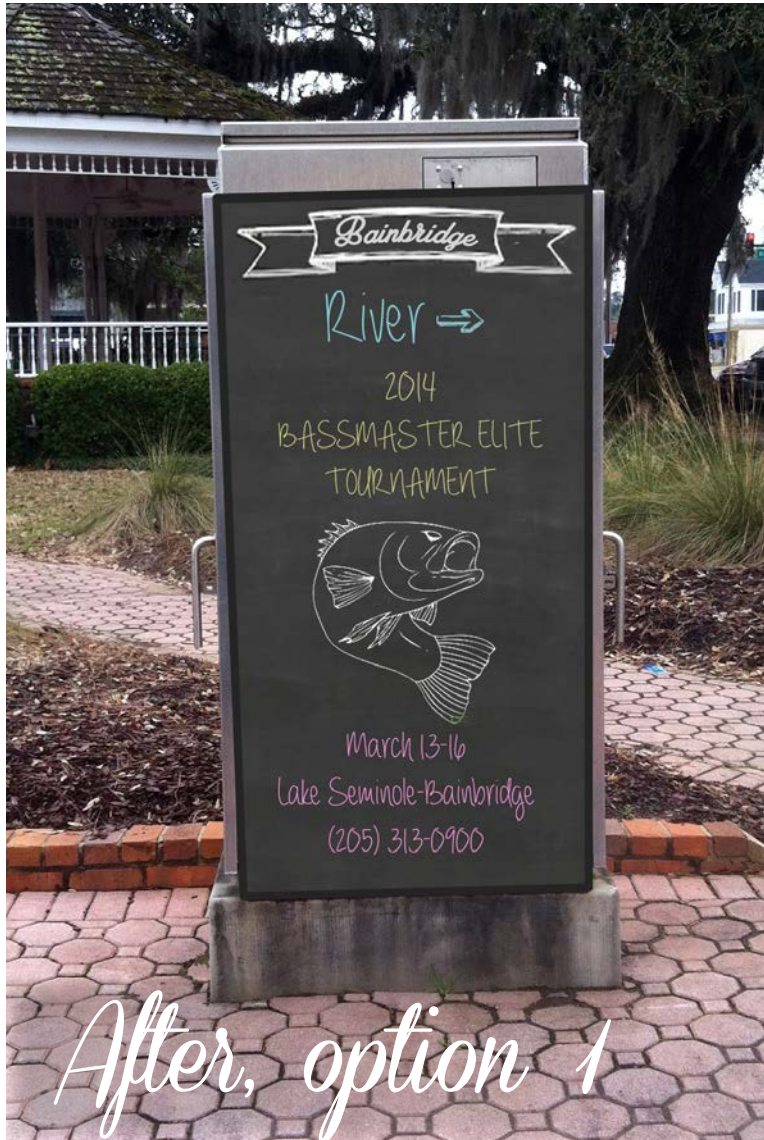 Bainbridge
River →
2014
BASSMASTER ELITE
TOURNAMENT
March 13-16
Lake Seminole-Bainbridge
(205) 313-0900
After, option 1